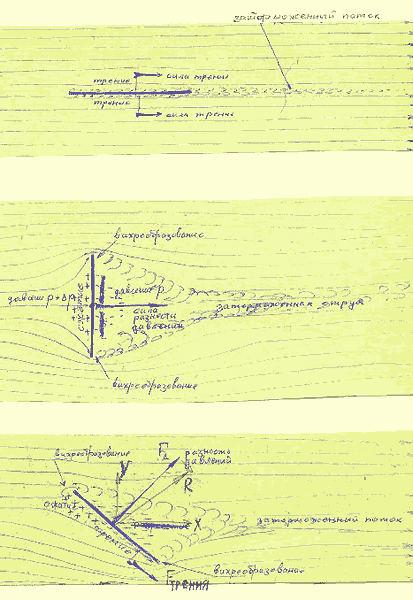 заторможенный поток
трение
сила трения
трение
сила трения
вихреобразование
давлен p+Δp
сжатие
давление P
сила
разности
давлений
заторможенная струя
вихреобразование
вихреобразование
y
разность
давлений
R
сжатие
трение
разрежение
X
заторможенный поток
вихреобразование
Fтрения